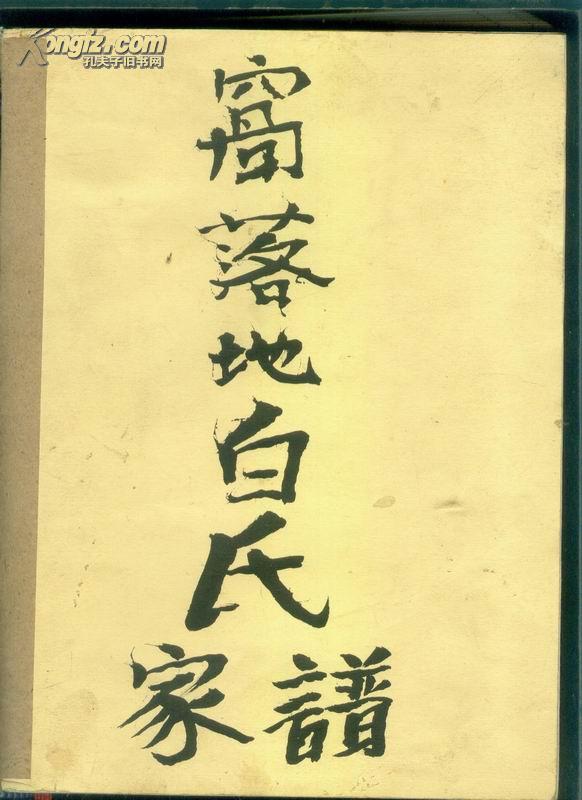 Kongfz.com
孔夫子旧书网
窩落地白氏
家譜